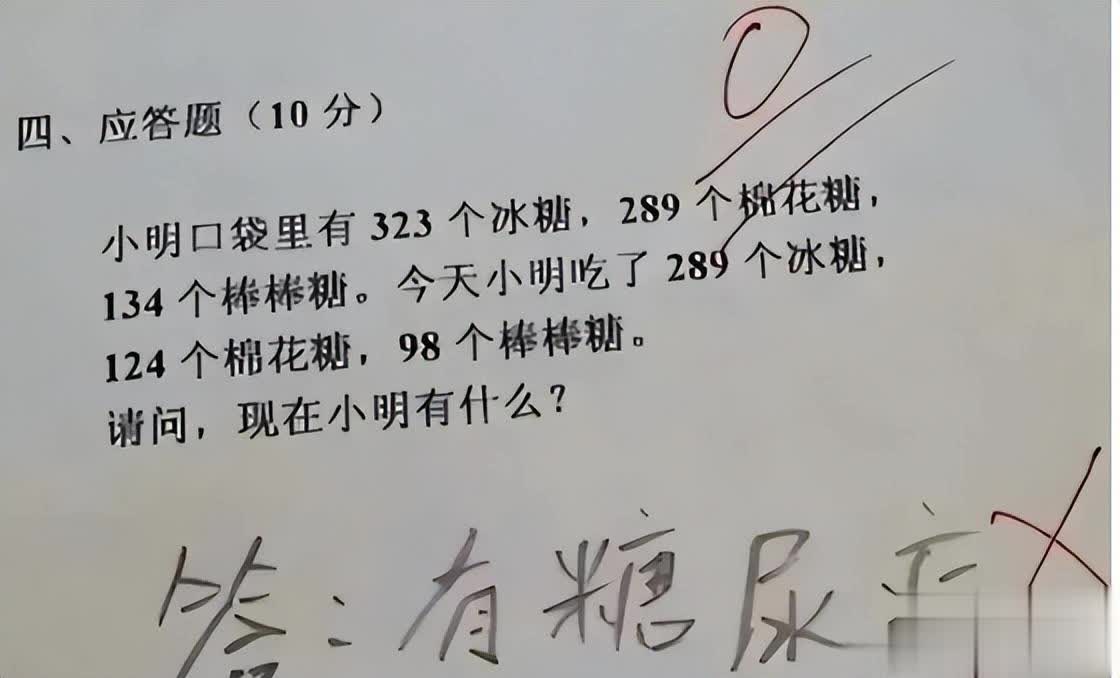 0
四、应答题（10 分）
小明口袋里有 323 个冰糖，289 个棉花糖，
134 个棒棒糖。今天小明吃了 289 个冰糖，
124 个棉花糖，98 个棒棒糖。
请问，现在小明有什么？
答：有糖尿